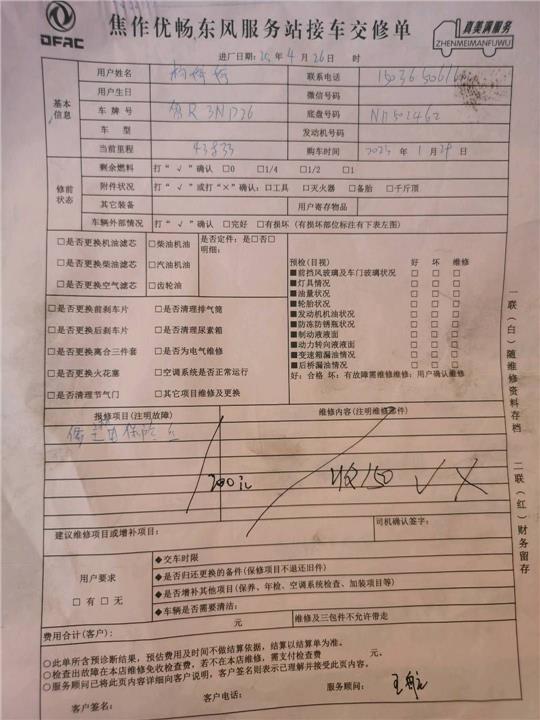 DFAC
焦作优畅东风服务站接车交修单
真美满服务
ZHENMEIMANFUWU
进厂日期: 25 年 4 月 26 日 时
基本信息
用户姓名
联系电话
用户生日
微信号码
车 牌 号
底盘号码
车 型
发动机号码
当前里程
购车时间 2023 年 1 月 29 日
修前状态
剩余燃料 打“√”确认 □0 □1/4 □1/2 □1
附件状况 打“√”或打“×”确认: 口工具 □灭火器 □备胎 □千斤顶
其它装备 用户寄存物品
车辆外部情况 打“√”确认 □完好 □有损坏 (有损坏部位标注有下表左图)
□是否更换机油滤芯 □柴油机油
□是否更换柴油滤芯 □汽油机油
□是否更换空气滤芯 □齿轮油
是否定件: 是□否□
明细:
□是否更换前刹车片 □是否清理排气筒
□是否更换后刹车片 □是否清理尿素箱
□是否更换离合三件套 □是否为电气维修
□是否更换火花塞 □空调系统是否正常运行
□是否清理节气门 □其它项目维修及更换
预检(目视) 好 坏 维修
■前挡风玻璃及车门玻璃状况 □ □ □
■灯具情况 □ □ □
■油量状况 □ □ □
■轮胎状况 □ □ □
■发动机机油状况 □ □ □
■防冻防锈瓶状况 □ □ □
■制动液液面 □ □ □
■动力转向液液面 □ □ □
■变速箱漏油情况 □ □ □
■后桥漏油情况 □ □ □
好: 合格 坏: 有故障需维修维修: 用户确认维修
报修项目(注明故障) 维修内容(注明维修部件)
收150 √ ×
建议维修项目或增补项目:
司机确认签字:
用户要求
□ 有 □ 无
◆交车时限
◆是否归还更换的备件(保修项目不退还旧件)
◆是否增补其他项目(保养、年检、空调系统检查、加装项目等)
◆车辆是否需要清洁:
费用合计(客户): 元 维修及三包件不允许带走
○此单所含预诊断结果, 预估费用及时间不做结算依据, 结算以结算单为准。
○检查出故障在本店维修免收检查费, 若不在本店维修, 需支付检查费 元。
○服务顾问已将此页内容详细向客户说明, 客户签名则表示已理解并接受此页内容。
客户签名: 客户电话: 服务顾问:
一联(白)随维修资料存档 二联(红)财务留存